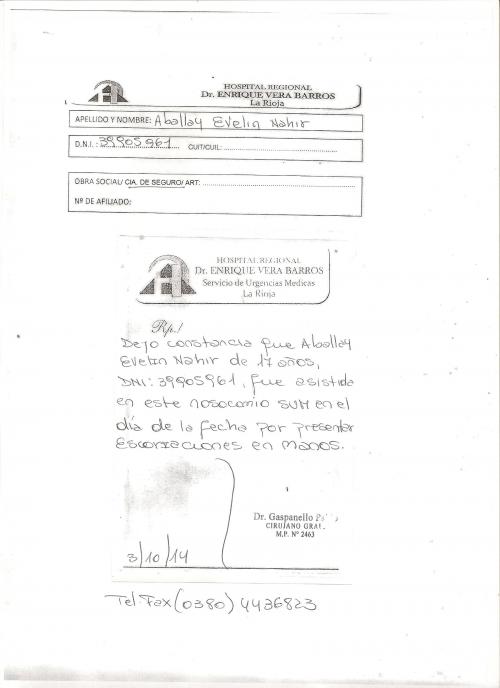 HOSPITAL REGIONAL
Dr. ENRIQUE VERA BARROS
La Rioja
APELLIDO Y NOMBRE: Aballay Evelin Nahir
D.N.I.: 39905961 CUIT/CUIL:
OBRA SOCIAL/ CIA. DE SEGURO/ ART:
Nº DE AFILIADO:
HOSPITAL REGIONAL
Dr. ENRIQUE VERA BARROS
Servicio de Urgencias Medicas
La Rioja
Rp./
Dejo constancia que Aballay
Evelin Nahir de 17 años,
DNI: 39905961, fue asistida
en este nosocomio SUM en el
día de la fecha por presentar
Escoriaciones en Manos.
Dr. Gaspanello
CIRUJANO GRAL.
M.P. Nº 2463
3/10/14
Tel-Fax (0380) 4436823